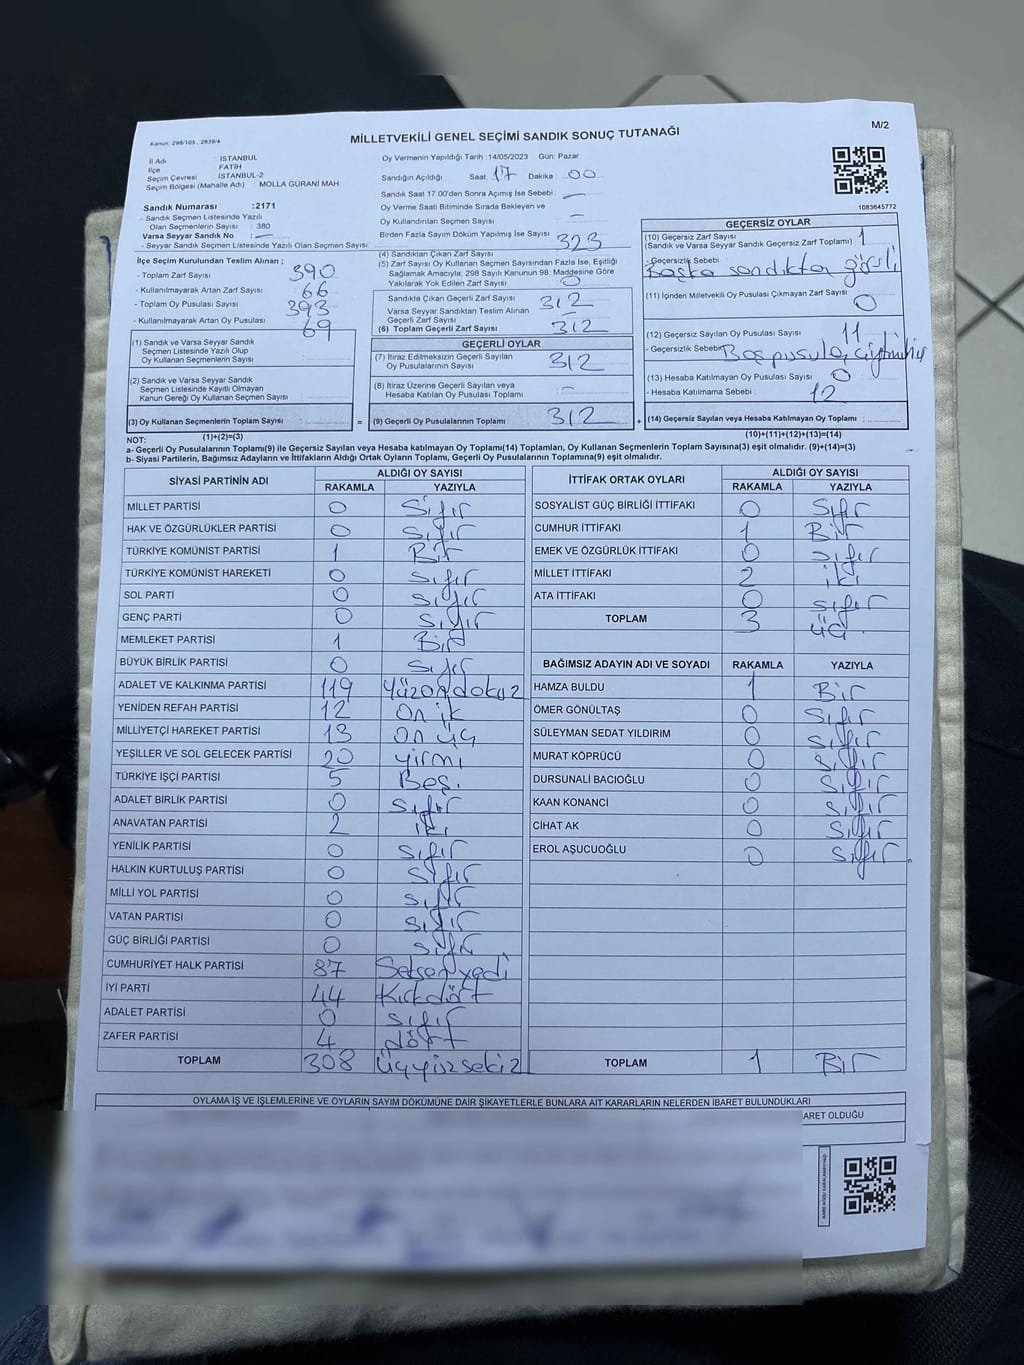 M/2
Kanun: 298/105 , 2839/4
MİLLETVEKİLİ GENEL SEÇİMİ SANDIK SONUÇ TUTANAĞI
İl Adı : İSTANBUL
İlçe : FATİH
Seçim Çevresi : İSTANBUL-2
Seçim Bölgesi (Mahalle Adı) : MOLLA GÜRANİ MAH
Sandık Numarası :2171
- Sandık Seçmen Listesinde Yazılı
Olan Seçmenlerin Sayısı : 380
Varsa Seyyar Sandık No :
- Seyyar Sandık Seçmen Listesinde Yazılı Olan Seçmen Sayısı:
Oy Vermenin Yapıldığı Tarih :14/05/2023 Gün: Pazar
Sandığın Açıldığı Saat: 17 Dakika : 00
Sandık Saat 17:00'den Sonra Açımış İse Sebebi :
Oy Verme Saati Bitiminde Sırada Bekleyen ve
Oy Kullandırılan Seçmen Sayısı :
Birden Fazla Sayım Döküm Yapılmış İse Sayısı :
1083645772
İlçe Seçim Kurulundan Teslim Alınan ;
- Toplam Zarf Sayısı : 390
- Kullanılmayarak Artan Zarf Sayısı : 66
- Toplam Oy Pusulası Sayısı : 393
- Kullanılmayarak Artan Oy Pusulası : 69
(1) Sandık ve Varsa Seyyar Sandık
Seçmen Listesinde Yazılı Olup
Oy Kullanan Seçmenlerin Sayısı :
(2) Sandık ve Varsa Seyyar Sandık
Seçmen Listesinde Kayıtlı Olmayan
Kanun Gereği Oy Kullanan Seçmen Sayısı :
(3) Oy Kullanan Seçmenlerin Toplam Sayısı :
(1)+(2)=(3)
(4) Sandıktan Çıkan Zarf Sayısı : 323
(5) Zarf Sayısı Oy Kullanan Seçmen Sayısından Fazla İse, Eşitliği
Sağlamak Amacıyla; 298 Sayılı Kanunun 98. Maddesine Göre
Yakılarak Yok Edilen Zarf Sayısı : 0
Sandıkta Çıkan Geçerli Zarf Sayısı : 312
Varsa Seyyar Sandıktan Teslim Alınan
Geçerli Zarf Sayısı :
(6) Toplam Geçerli Zarf Sayısı : 312
GEÇERLİ OYLAR
(7) İtiraz Edilmeksizin Geçerli Sayılan
Oy Pusulalarının Sayısı : 312
(8) İtiraz Üzerine Geçerli Sayılan veya
Hesaba Katılan Oy Pusulası Toplamı :
= (9) Geçerli Oy Pusulalarının Toplamı : 312 +
GEÇERSİZ OYLAR
(10) Geçersiz Zarf Sayısı
(Sandık ve Varsa Seyyar Sandık Geçersiz Zarf Toplamı) : 1
- Geçersizlik Sebebi
Başka sandıkta
(11) İçinden Milletvekili Oy Pusulası Çıkmayan Zarf Sayısı : 0
(12) Geçersiz Sayılan Oy Pusulası Sayısı : 11
- Geçersizlik Sebebi: Boş pusula,
(13) Hesaba Katılmayan Oy Pusulası Sayısı : 0
- Hesaba Katılmama Sebebi : 12
(14) Geçersiz Sayılan veya Hesaba Katılmayan Oy Toplamı :
(10)+(11)+(12)+(13)=(14)
NOT:
a- Geçerli Oy Pusulalarının Toplamı(9) ile Geçersiz Sayılan veya Hesaba katılmayan Oy Toplamı(14) Toplamları, Oy Kullanan Seçmenlerin Toplam Sayısına(3) eşit olmalıdır. (9)+(14)=(3)
b- Siyasi Partilerin, Bağımsız Adayların ve İttifakların Aldığı Ortak Oyların Toplamı, Geçerli Oy Pusulalarının Toplamına(9) eşit olmalıdır.
SİYASİ PARTİNİN ADI ALDIĞI OY SAYISI
RAKAMLA YAZIYLA
MİLLET PARTİSİ 0 Sıfır
HAK VE ÖZGÜRLÜKLER PARTİSİ 0 Sıfır
TÜRKİYE KOMÜNİST PARTİSİ 1 Bir
TÜRKİYE KOMÜNİST HAREKETİ 0 Sıfır
SOL PARTİ 0 Sıfır
GENÇ PARTİ 0 Sıfır
MEMLEKET PARTİSİ 1 Bir
BÜYÜK BİRLİK PARTİSİ 0 Sıfır
ADALET VE KALKINMA PARTİSİ 119 Yüzondokuz
YENİDEN REFAH PARTİSİ 12 On ik
MİLLİYETÇİ HAREKET PARTİSİ 13 On üç
YEŞİLLER VE SOL GELECEK PARTİSİ 20 yirmi
TÜRKİYE İŞÇİ PARTİSİ 5 Beş.
ADALET BİRLİK PARTİSİ 0 Sıfır
ANAVATAN PARTİSİ 2 iki
YENİLİK PARTİSİ 0 Sıfır
HALKIN KURTULUŞ PARTİSİ 0 Sıfır
MİLLİ YOL PARTİSİ 0 Sıfır
VATAN PARTİSİ 0 Sıfır
GÜÇ BİRLİĞİ PARTİSİ 0 Sıfır
CUMHURİYET HALK PARTİSİ 87 Seksenyedi
İYİ PARTİ 44 Kırkdört
ADALET PARTİSİ 0 Sıfır
ZAFER PARTİSİ 4 dört
TOPLAM 308 üçyüzsekiz
İTTİFAK ORTAK OYLARI ALDIĞI OY SAYISI
RAKAMLA YAZIYLA
SOSYALİST GÜÇ BİRLİĞİ İTTİFAKI 0 Sıfır
CUMHUR İTTİFAKI 1 Bir
EMEK VE ÖZGÜRLÜK İTTİFAKI 0 Sıfır
MİLLET İTTİFAKI 2 iki
ATA İTTİFAKI 0 Sıfır
TOPLAM 3 üç
BAĞIMSIZ ADAYIN ADI VE SOYADI RAKAMLA YAZIYLA
HAMZA BULDU 1 Bir
ÖMER GÖNÜLTAŞ 0 Sıfır
SÜLEYMAN SEDAT YILDIRIM 0 Sıfır
MURAT KÖPRÜCÜ 0 Sıfır
DURSUNALİ BACIOĞLU 0 Sıfır
KAAN KONANCİ 0 Sıfır
CİHAT AK 0 Sıfır
EROL AŞUCUOĞLU 0 Sıfır
TOPLAM 1 Bir
OYLAMA İŞ VE İŞLEMLERİNE VE OYLARIN SAYIM DÖKÜMÜNE DAİR ŞİKAYETLERLE BUNLARA AİT KARARLARIN NELERDEN İBARET BULUNDUKLARI
ARET OLDUĞU